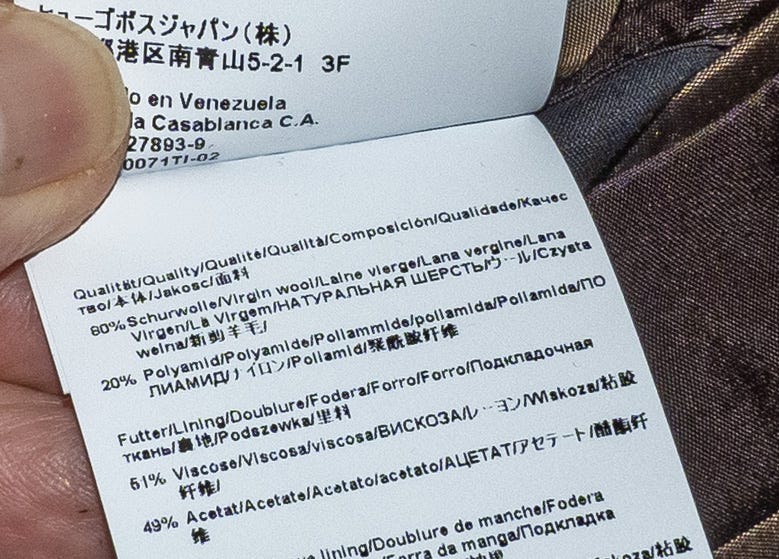 ヒューゴボスジャパン(株)
港区南青山5-2-1 3F
o en Venezuela
la Casablanca C.A.
27893-9
0071TI-02
Qualität/Quality/Qualité/Qualità/Composición/Qualidade/Качес
тво/本体/Jakosc/面料
80% Schurwolle/Virgin wool/Laine vierge/Lana vergine/Lana
Virgen/Lã Virgem/НАТУРАЛЬНАЯ ШЕРСТЬ/ウール/Czysta
welna/新剪羊毛/
20% Polyamid/Polyamide/Poliammide/poliamida/Poliamida/ПО
ЛИАМИД/ナイロン/Poliamid/聚酰胺纤维
Futter/Lining/Doublure/Fodera/Forro/Forro/Подкладочная
ткань/裏地/Podszewka/里料
51% Viscose/Viscosa/viscosa/ВИСКОЗА/レーヨン/Wiskoza/粘胶
纤维/
49% Acetat/Acetate/Acetato/acetato/АЦЕТАТ/アセテート/醋酯纤
维
lining/Doublure de manche/Fodera
da manga/Подкладка
Wiskoza/粘胶